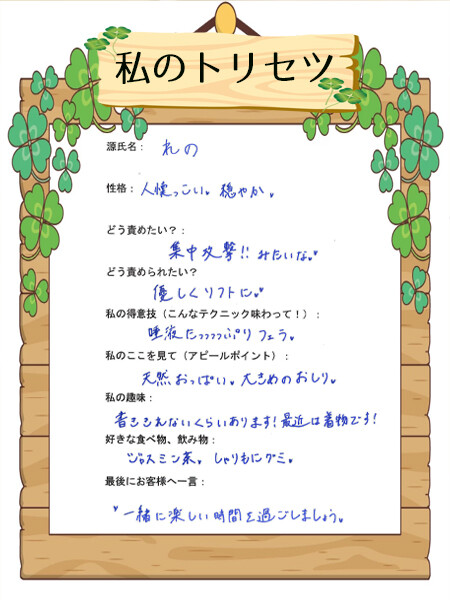 私のトリセツ
源氏名： れの
性格： 人懐っこい。穏やか。
どう責めたい？：
集中攻撃!! みたいな。♥
どう責められたい？
優しくソフトに。♥
私の得意技（こんなテクニック味わって！）：
唾液たっっっっぷりフェラ。
私のここを見て（アピールポイント）：
天然おっぱい。大きめのおしり。
私の趣味：
書ききれないくらいあります！最近は着物です！
好きな食べ物、飲み物：
ジャスミン茶。しゃりもにグミ。
最後にお客様へ一言：
♥一緒に楽しい時間を過ごしましょう。